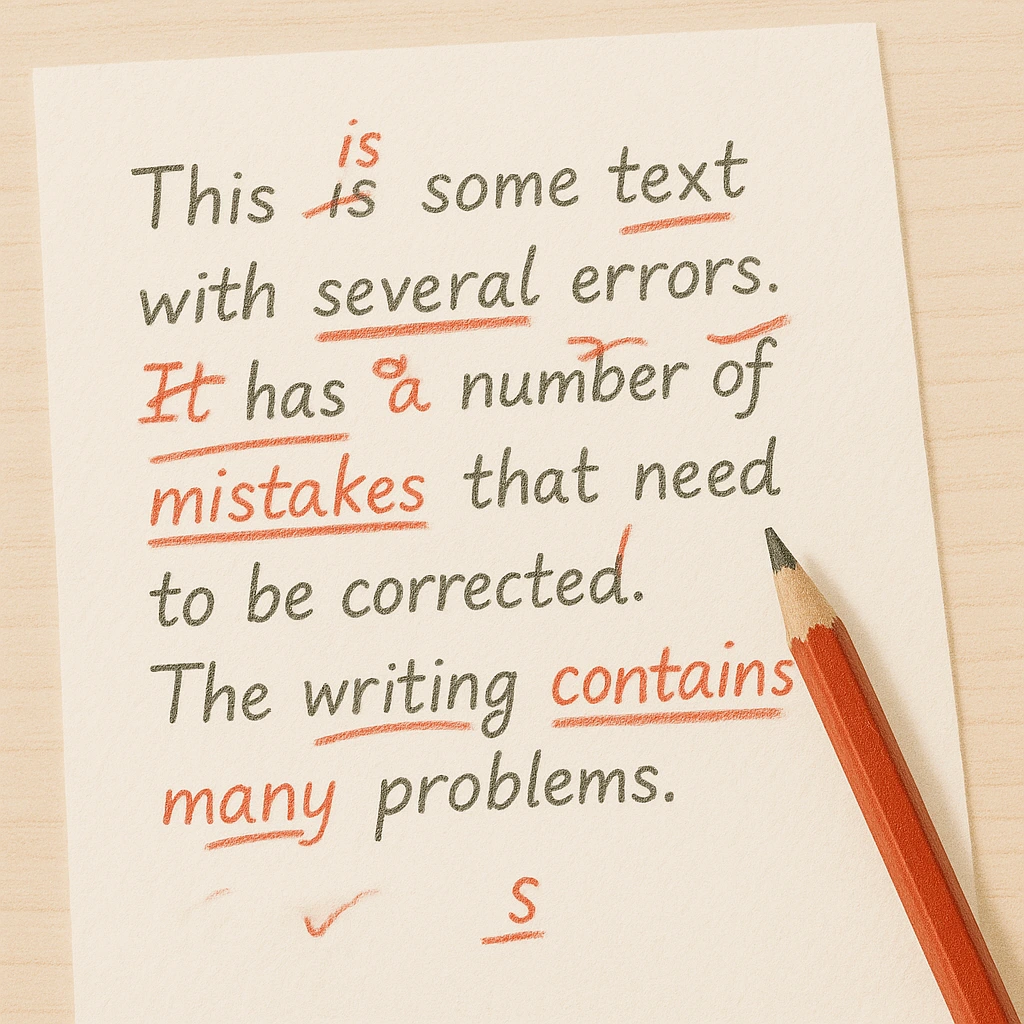 is
This is some text
with several errors.
It has a number of
mistakes that need
to be corrected.
The writing contains
many problems.
s